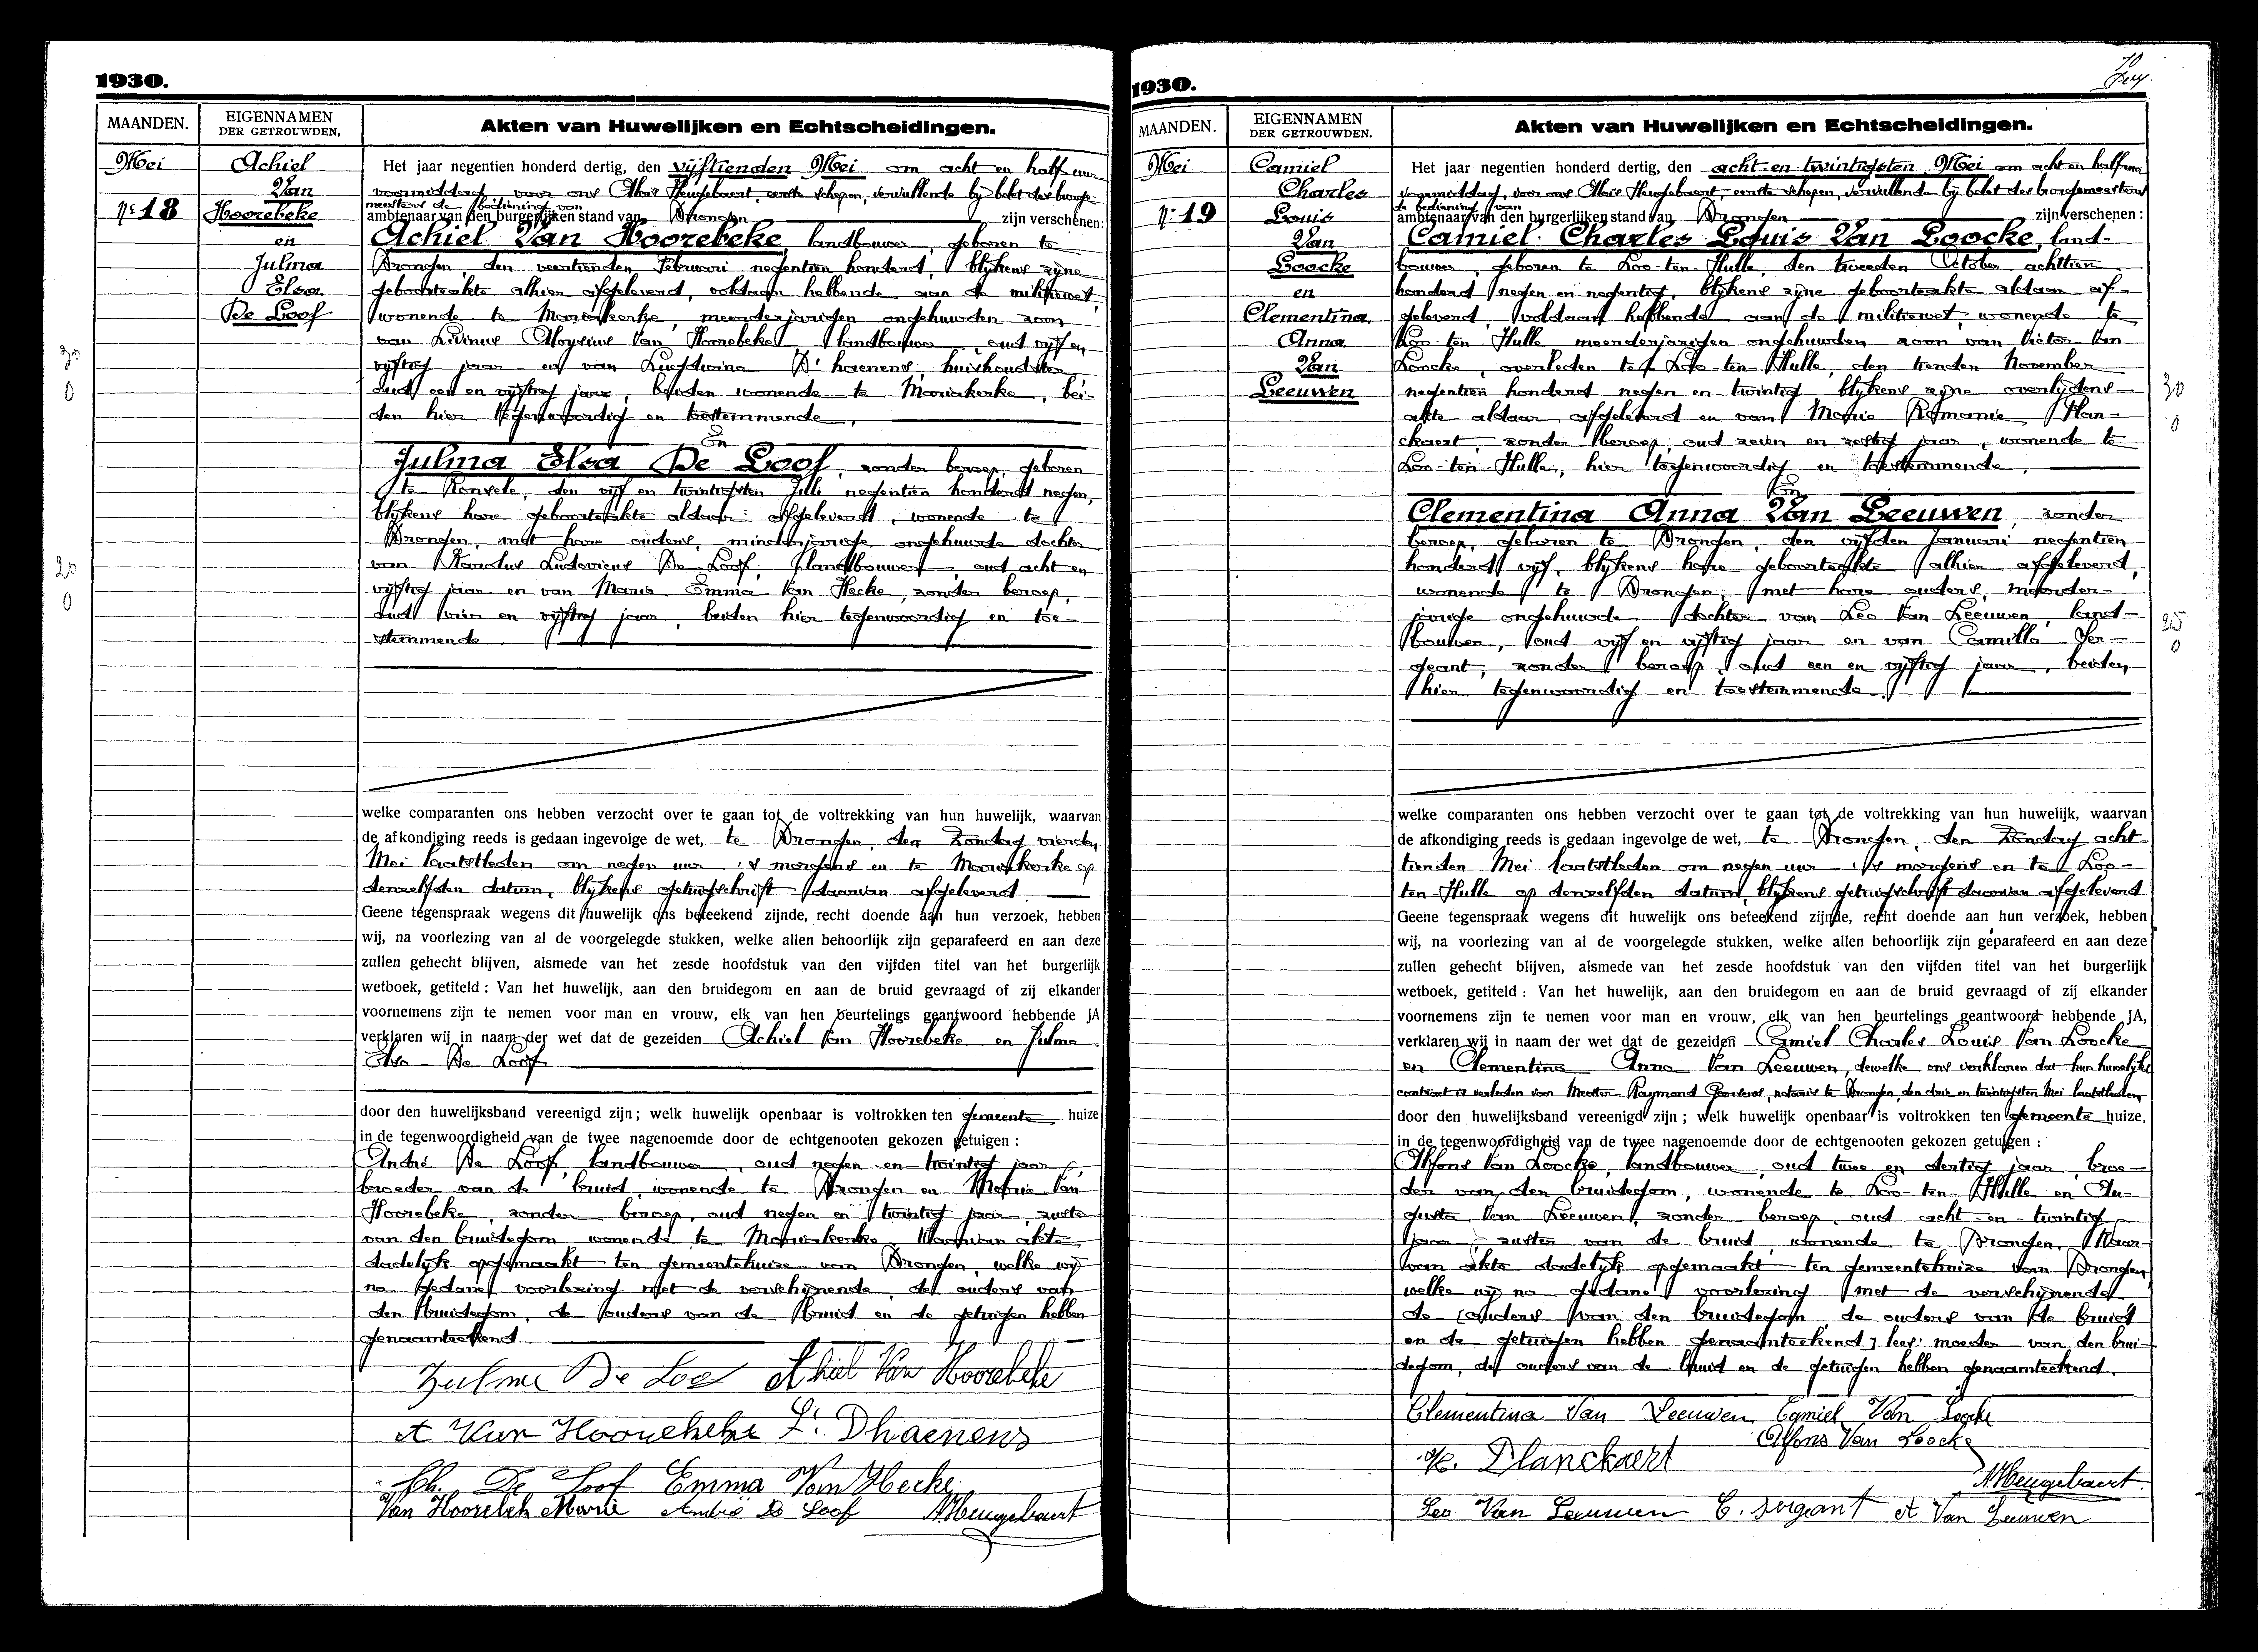 1930.
MAANDEN.
EIGENNAMEN
DER GETROUWDEN.
Akten van Huwelijken en Echtscheidingen.
Mei
Nr 18
Achiel
Van
Hoorebeke
en
Julma
Elsa
De Loof
30
0
25
0
Het jaar negentien honderd dertig, den vijftienden Mei om acht en half uur
voormiddag voor ons Aloïs Heugebaert, eerste schepen, vervullende bij belet des burge-
meesters de bediening van
ambtenaar van den burgerlijken stand van Drongen zijn verschenen:
Achiel Van Hoorebeke, landbouwer, geboren te
Drongen, den veertienden Februari negentien honderd, blijkens zijne
geboorteakte alhier afgeleverd, voldaan hebbende aan de militiewet,
wonende te Mariakerke, meerderjarigen ongehuwden zoon
van Livinus Aloysius Van Hoorebeke landbouwer, oud vijf en
vijftig jaar en van Ludwina D'haenens, huishoudster
oud een en vijftig jaar, beiden wonende te Mariakerke, bei-
den hier tegenwoordig en toestemmende,
En
Julma Elsa De Loof, zonder beroep, geboren
te Ronsele, den vijf en twintigsten Juli negentien honderd negen,
blijkens hare geboorteakte aldaar afgeleverd, wonende te
Drongen, met hare ouders, minderjarige ongehuwde dochter
van Karolus Ludovicus De Loof, landbouwer, oud acht en
vijftig jaar en van Maria Emma Van Hecke, zonder beroep,
oud vier en vijftig jaar, beiden hier tegenwoordig en toe-
stemmende
welke comparanten ons hebben verzocht over te gaan tot de voltrekking van hun huwelijk, waarvan
de afkondiging reeds is gedaan ingevolge de wet, te Drongen, den Zondag vierden
Mei laatstleden om negen uur 's morgens en te Mariakerke op
denzelfden datum, blijkens getuigschrift daarvan afgeleverd
Geene tegenspraak wegens dit huwelijk ons beteekend zijnde, recht doende aan hun verzoek, hebben
wij, na voorlezing van al de voorgelegde stukken, welke allen behoorlijk zijn geparafeerd en aan deze
zullen gehecht blijven, alsmede van het zesde hoofdstuk van den vijfden titel van het burgerlijk
wetboek, getiteld : Van het huwelijk, aan den bruidegom en aan de bruid gevraagd of zij elkander
voornemens zijn te nemen voor man en vrouw, elk van hen beurtelings geantwoord hebbende JA
verklaren wij in naam der wet dat de gezeiden Achiel Van Hoorebeke en Julma
Elsa De Loof
door den huwelijksband vereenigd zijn; welk huwelijk openbaar is voltrokken ten gemeente huize
in de tegenwoordigheid van de twee nagenoemde door de echtgenooten gekozen getuigen :
André De Loof, landbouwer, oud negen en twintig jaar,
broeder van de bruid, wonende te Drongen en Maria Van
Hoorebeke, zonder beroep, oud negen en twintig jaar, zuster
van den bruidegom wonende te Mariakerke. Waarvan akte
dadelijk opgemaakt ten gemeentehuize van Drongen, welke wij
na gedane voorlezing met de verschijnende, de ouders van
den bruidegom, de ouders van de bruid en de getuigen hebben
genaamteekend
Zulma De Loof Achiel Van Hoorebeke
A Van Hoorebeke L. Dhaenens
Ch. De Loof Emma Van Hecke
Van Hoorebeke Marie André De Loof A. Heugebaert
1930.
10
MAANDEN.
EIGENNAMEN
DER GETROUWDEN.
Akten van Huwelijken en Echtscheidingen.
Mei
Nr 19
Camiel
Charles
Louis
Van
Loocke
en
Clementina
Anna
Van
Leeuwen
30
0
25
0
Het jaar negentien honderd dertig, den acht en twintigsten Mei om acht en half uur
voormiddag, voor ons Aloïs Heugebaert, eerste schepen, vervullende bij belet des burgemeesters
de bediening van
ambtenaar van den burgerlijken stand van Drongen zijn verschenen :
Camiel Charles Louis Van Loocke, land-
bouwer, geboren te Loo-ten-Hulle, den tweeden October achttien
honderd negen en negentig, blijkens zijne geboorteakte aldaar af-
geleverd, voldaan hebbende aan de militiewet, wonende te
Loo-ten-Hulle, meerderjarigen ongehuwden zoon van Victor Van
Loocke, overleden te Loo-ten-Hulle, den tienden November
negentien honderd negen en twintig blijkens zijne overlijdens-
akte aldaar afgeleverd en van Marie Romanie Plan-
ckaert, zonder beroep, oud zeven en zestig jaar, wonende te
Loo-ten-Hulle, hier tegenwoordig en toestemmende,
En
Clementina Anna Van Leeuwen, zonder
beroep, geboren te Drongen, den vijfden Januari negentien
honderd vijf, blijkens hare geboorteakte alhier afgeleverd,
wonende te Drongen, met hare ouders, meerder-
jarige ongehuwde dochter van Leo Van Leeuwen, land-
bouwer, oud vijf en vijftig jaar en van Camilla Ser-
geant, zonder beroep, oud een en vijftig jaar, beiden
hier tegenwoordig en toestemmende
welke comparanten ons hebben verzocht over te gaan tot de voltrekking van hun huwelijk, waarvan
de afkondiging reeds is gedaan ingevolge de wet, te Drongen, den Zondag acht
tienden Mei laatstleden om negen uur 's morgens en te Loo-
ten-Hulle op denzelfden datum, blijkens getuigschrift daarvan afgeleverd
Geene tegenspraak wegens dit huwelijk ons beteekend zijnde, recht doende aan hun verzoek, hebben
wij, na voorlezing van al de voorgelegde stukken, welke allen behoorlijk zijn geparafeerd en aan deze
zullen gehecht blijven, alsmede van het zesde hoofdstuk van den vijfden titel van het burgerlijk
wetboek, getiteld : Van het huwelijk, aan den bruidegom en aan de bruid gevraagd of zij elkander
voornemens zijn te nemen voor man en vrouw, elk van hen beurtelings geantwoord hebbende JA,
verklaren wij in naam der wet dat de gezeiden Camiel Charles Louis Van Loocke
en Clementina Anna Van Leeuwen, dewelke ons verklaren dat hun huwelijks
contract is verleden voor Meester Raymond Goossens, notaris te Drongen, den drie en twintigsten Mei laatstleden,
door den huwelijksband vereenigd zijn ; welk huwelijk openbaar is voltrokken ten gemeente huize,
in de tegenwoordigheid van de twee nagenoemde door de echtgenooten gekozen getuigen :
Alfons Van Loocke, landbouwer, oud twee en dertig jaar, broe-
der van den bruidegom, wonende te Loo-ten-Hulle en Au-
gusta Van Leeuwen, zonder beroep, oud acht en twintig
jaar, zuster van de bruid, wonende te Drongen. Waar-
van akte dadelijk opgemaakt ten gemeentehuize van Drongen,
welke wij na gedane voorlezing met de verschijnende
de (ouders van den bruidegom de ouders van de bruid
en de getuigen hebben genaamteekend) lees: moeder van den brui-
degom, de ouders van de bruid en de getuigen hebben genaamteekend.
Clementina Van Leeuwen Camiel Van Loocke
Alfons Van Loocke
R. Planckaert
A. Heugebaert
Leo Van Leeuwen C. Sergeant A Van Leeuwen